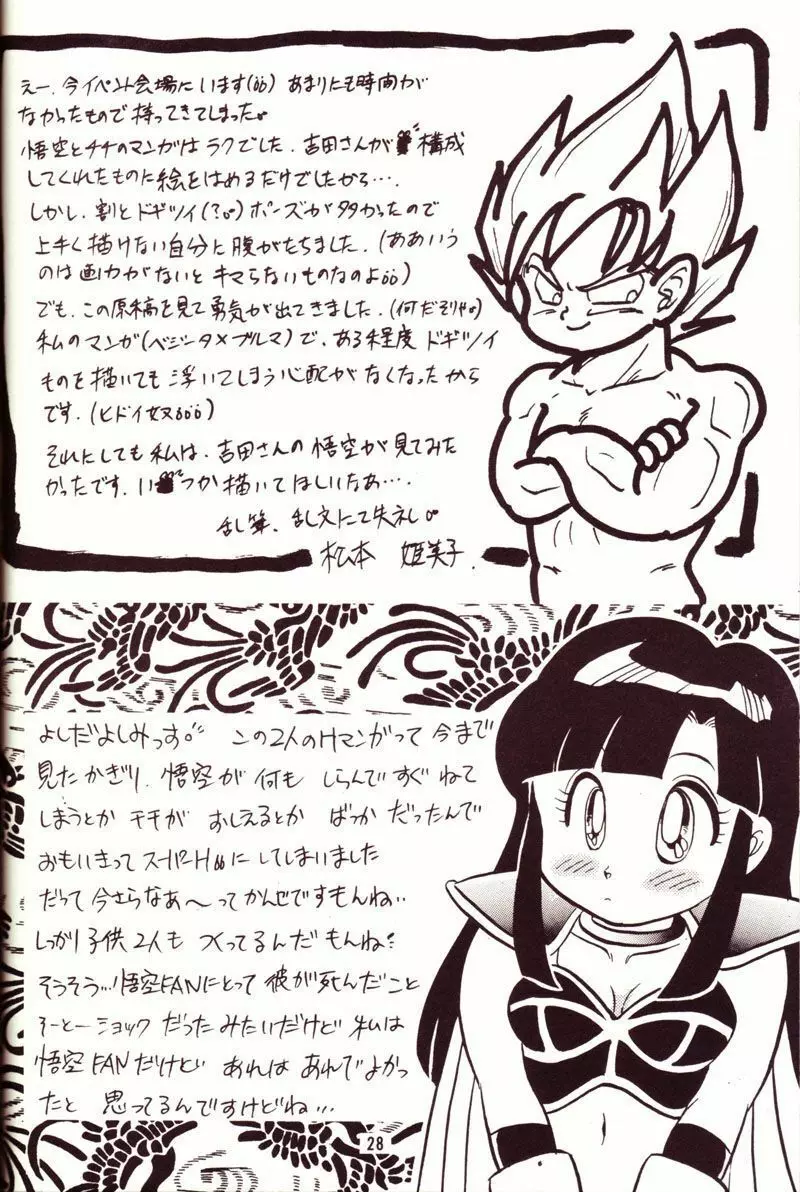 えー、今イベント会場にいます(öö) あまりにも時間が
なかったもので持ってきてしまった。
悟空とチチのマンガはラクでした。吉田さんが構成
してくれたものに絵をはめるだけでしたから…。
しかし、割とドギツイ(?。)ポーズが多かったので
上手く描けない自分に腹がたちました。(ああいう
のは画力がないとキマらないものなのよöö)
でも、この原稿を見て勇気が出てきました。(何だそりゃ。)
私のマンガ(ベジータ×ブルマ)で、ある程度ドギツイ
ものを描いても浮いてしまう心配がなくなったから
です。(ヒドイ奴ööö)
それにしても私は、吉田さんの悟空が見てみた
かったです。いつか描いてほしいなあ…。
乱筆、乱文にて失礼。
松本 姫美子。
よしだよしみっす。 この2人のHマンガって今まで
見たかぎり、悟空が何も しらんですぐねて
しまうとか チチが おしえるとか ばっか だったんで
おもいきって スーパーHööにしてしまいました
だって今さらなあ〜ってかんじですもんね‥
しっかり子供2人も つくってるんだもんね?
そうそう…悟空FANにとって 彼が死んだこと
そーとーショックだったみたいだけど 私は
悟空FANだけど あれは あれでよかっ
たと 思ってるんですけどね…
28